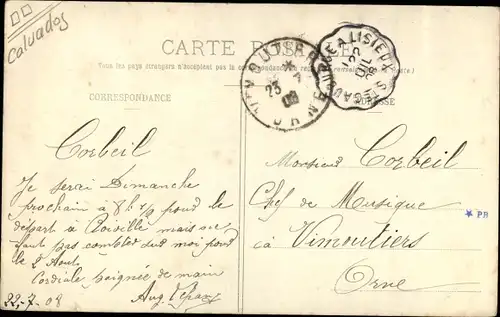 Calvados
CARTE POSTALE
Tous les pays étrangers n'acceptent pas la correspondance au
CORRESPONDANCE
ADRESSE
VIMOUTIERS
ORNE
23
08
A LISIEUX
22
08
Corbeil
Je serai Dimanche
prochain à 8h 1/2 pour le
départ à mais ne
faut pas compter sur moi pour
le 2 Aout.
Cordiale poignée de main
Aug.
22-7-08
Monsieur Corbeil
Chef de Musique
à Vimoutiers
Orne
* PB